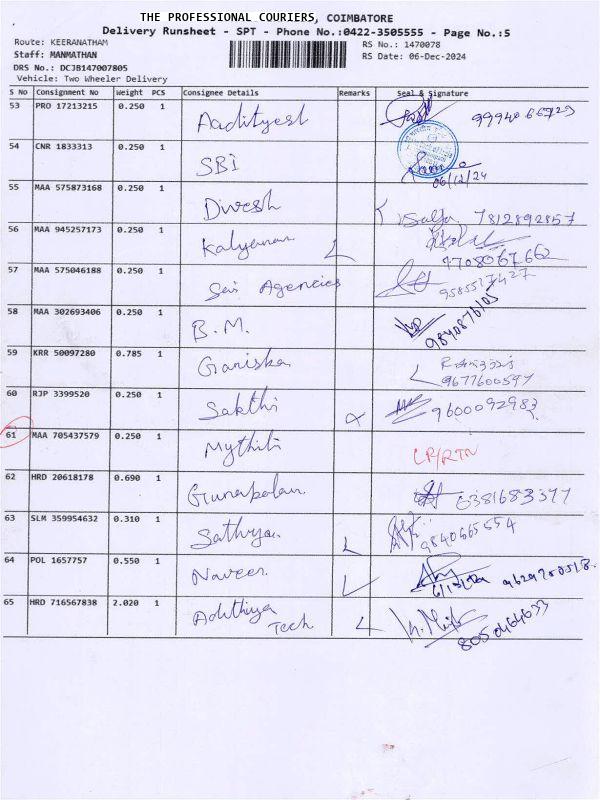 THE PROFESSIONAL COURIERS, COIMBATORE
Delivery Runsheet - SPT - Phone No.:0422-3505555 - Page No.:5
Route: KEERANATHAM RS No.: 1470078
Staff: MANMATHAN RS Date: 06-Dec-2024
DRS No.: DCJB147007805
Vehicle: Two Wheeler Delivery
S No Consignment No Weight PCS Consignee Details Remarks Seal & Signature
53 PRO 17213215 0.250 1 Aadityesh
54 CNR 1833313 0.250 1 SBI 06/12/24
55 MAA 575873168 0.250 1 Divesh 7812892857
56 MAA 945257173 0.250 1 Kalyanan
57 MAA 575046188 0.250 1 Sai Agencies 9585517427
58 MAA 302693406 0.250 1 B.M.
59 KRR 50097280 0.785 1 Ganiska 9677600597
60 RJP 3399520 0.250 1 Sakthi 9600092983
61 MAA 705437579 0.250 1 Mythili
62 HRD 20618178 0.690 1 Gunabalan
63 SLM 359954632 0.310 1 Sathya 9840665554
64 POL 1657757 0.550 1 Naveen
65 HRD 716567838 2.020 1 Adithiya
Tech 8050464633